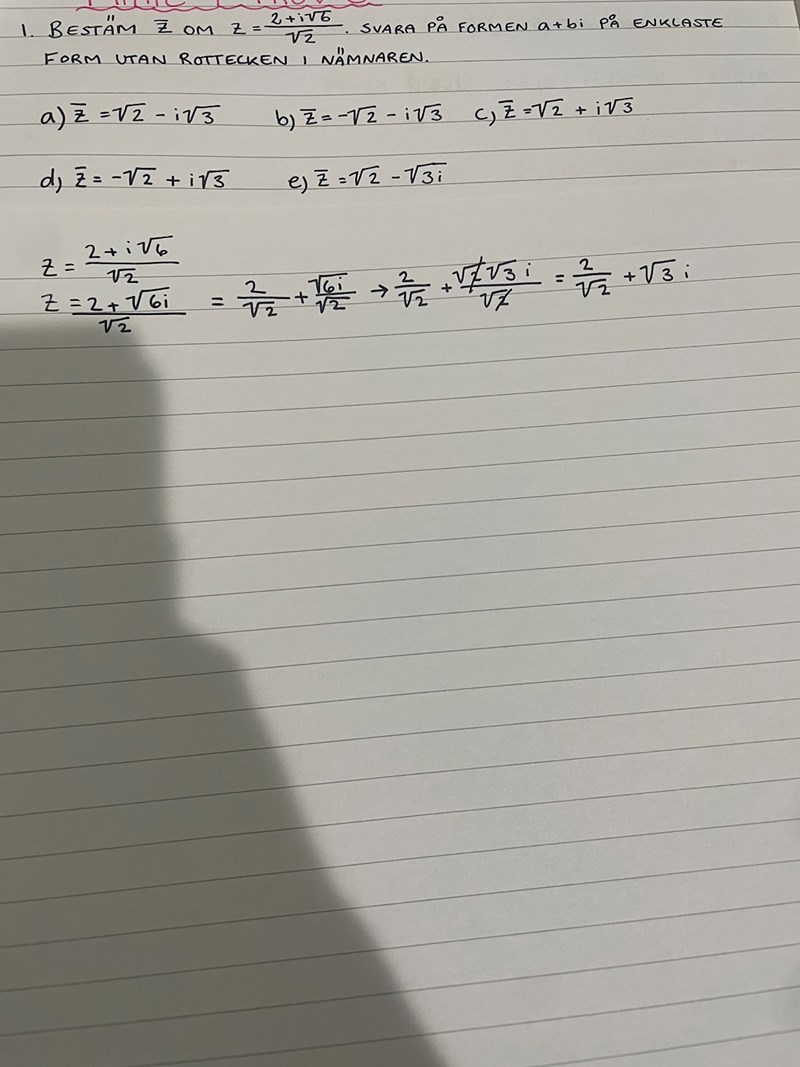 1. BESTÄM z̄ OM z = (2+i√6)/√2. SVARA PÅ FORMEN a+bi PÅ ENKLASTE
FORM UTAN ROTTECKEN I NÄMNAREN.
a) z̄ = √2 - i√3 b) z̄ = -√2 - i√3 c) z̄ = √2 + i√3
d) z̄ = -√2 + i√3 e) z̄ = √2 - √3i
z = (2 + i√6)/√2
z = (2 + √6i)/√2 = 2/√2 + √6i/√2 → 2/√2 + √2√3 i/√2 = 2/√2 + √3 i